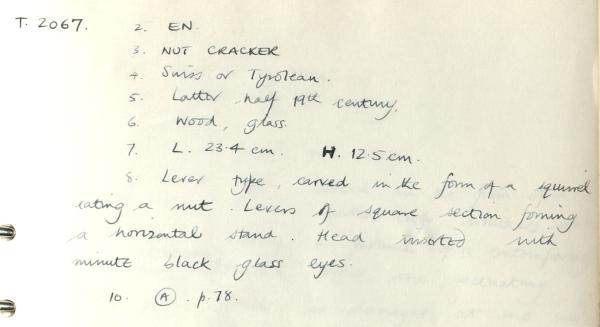 T. 2067. 2. EN.
3. NUT CRACKER
4. Swiss or Tyrolean.
5. Latter half 19th century.
6. Wood, glass.
7. L. 23.4 cm. H. 12.5 cm.
8. Lever type, carved in the form of a squirrel
eating a nut. Levers of square section forming
a horizontal stand. Head inserted with
minute black glass eyes.
10. A . p.78.